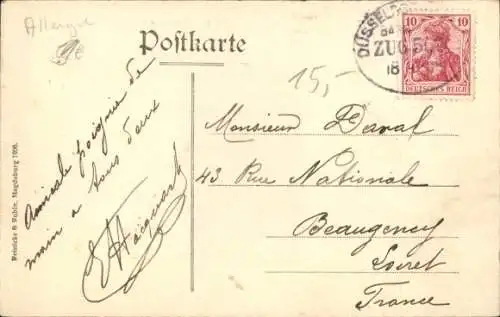 Allemagne
Postkarte
DÜSSELDO
BAHN
ZUG 5
18
10 10
DEUTSCHES REICH
15,-
Amicale poignée de
main a tous deux
Monsieur Daval
43 Rue Nationale
Beaugency
Loiret
France
Reinicke & Rubin, Magdeburg 1906.